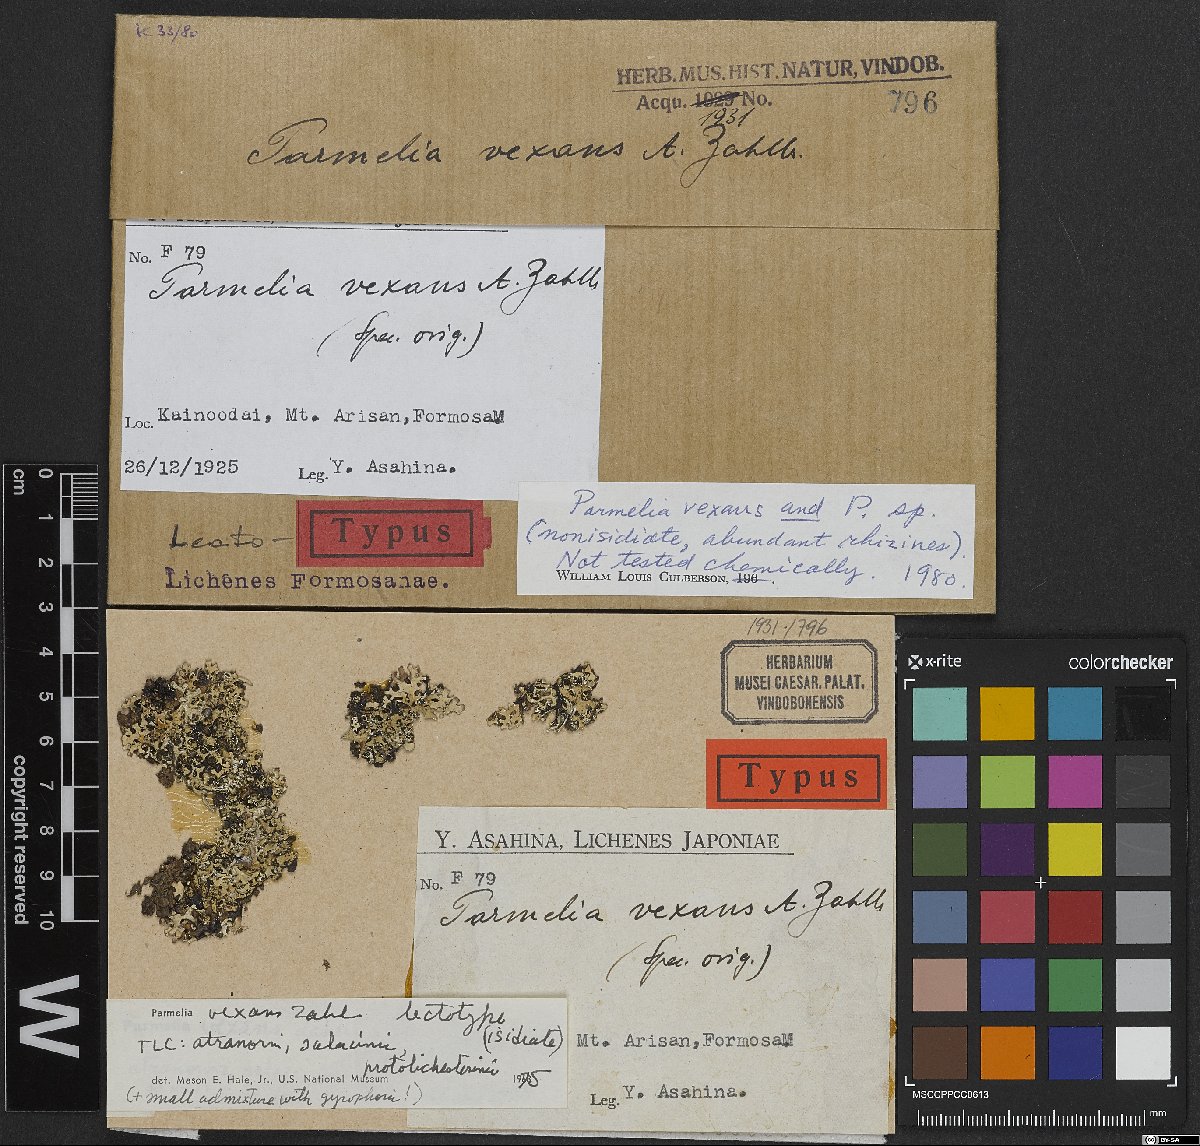 K 33/80
HERB. MUS. HIST. NATUR, VINDOB.
Acqu. 1929 No. 796
1931
Parmelia vexans A. Zahlb.
No. F 79
Parmelia vexans A. Zahlb
(Spec. orig.)
Loc. Kainoodai, Mt. Arisan, Formosa
26/12/1925 Leg. Y. Asahina.
Lecto- Typus
Lichenes Formosanae.
Parmelia vexans and P. sp.
(nonisidiate, abundant rhizines).
Not tested chemically. 1980.
WILLIAM LOUIS CULBERSON, 196
1931./796
HERBARIUM
MUSEI CAESAR. PALAT.
VINDOBONENSIS
Typus
Y. ASAHINA, LICHENES JAPONIAE
No. F 79
Parmelia vexans A. Zahlb
(Spec. orig.)
Mt. Arisan, Formosa
Leg. Y. Asahina.
Parmelia vexans Zahl. lectotype
(isidiate)
TLC: atranorin, salacinic,
protolichesterinic
det. Mason E. Hale, Jr., U.S. National Museum
(+ small admixture with gyrophoric!)
cm 0 1 2 3 4 5 6 7 8 9 10
copyright reserved
W
x-rite colorchecker
MSCCPPCC0613
mm
cc BY-SA